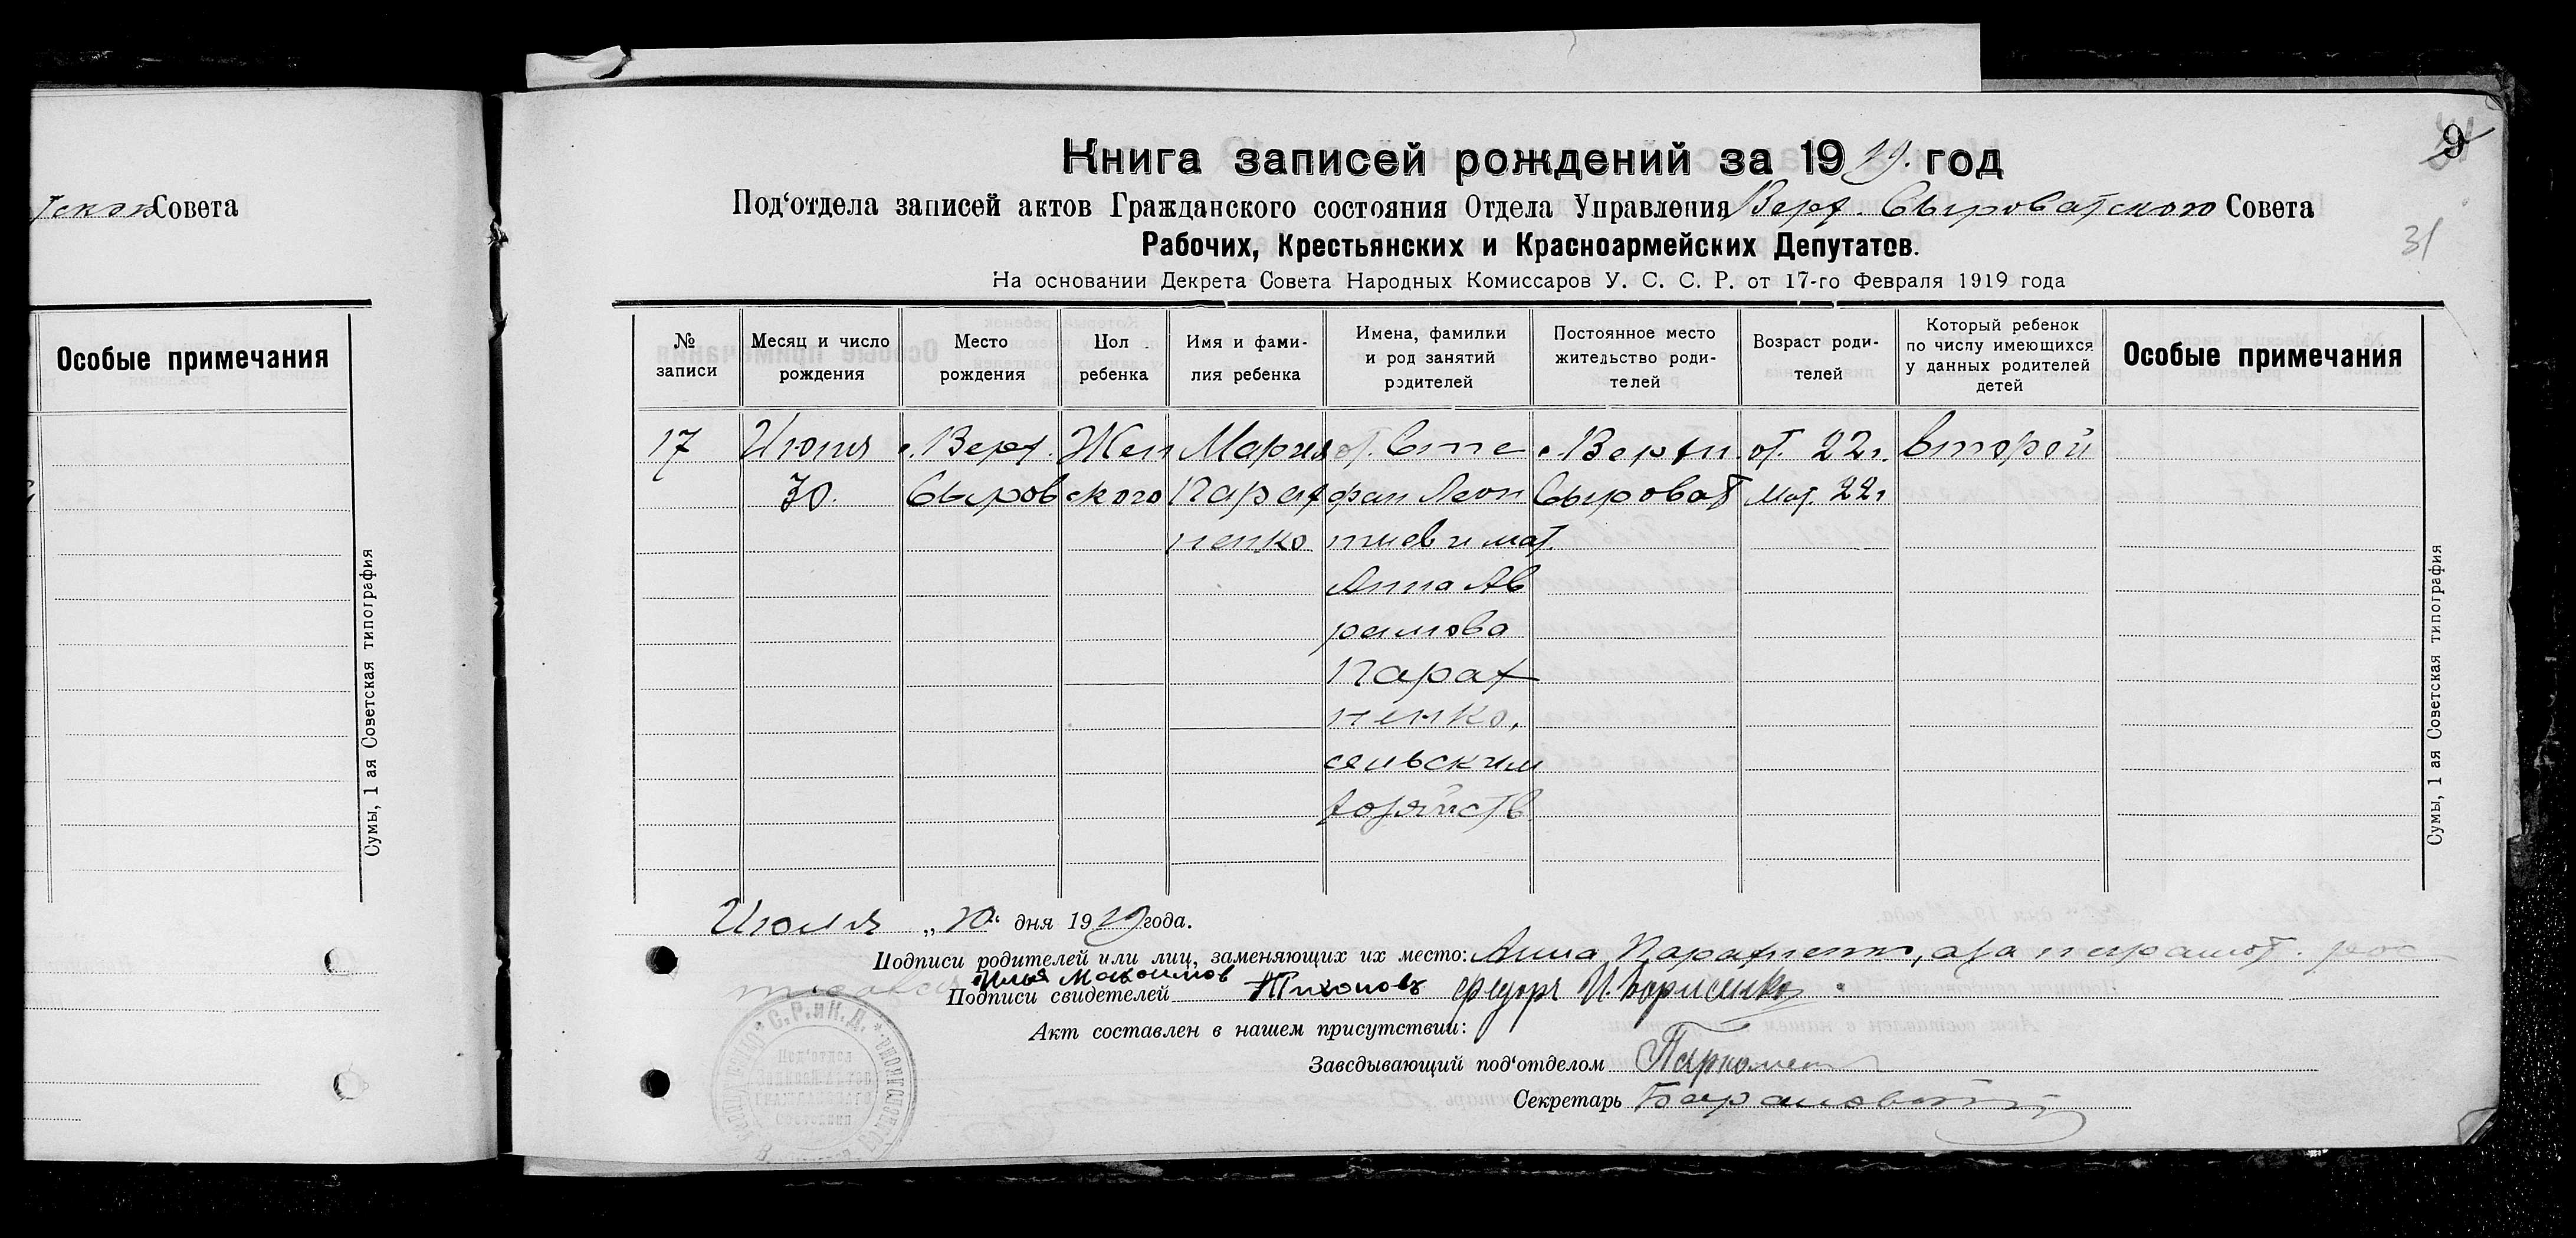 Совета
Особые примечания
Сумы, 1 ая Советская типография
9
31
Книга записей рождений за 1919. год
Под‘отдела записей актов Гражданского состояния Отдела Управления Верх. Сыроватского Совета
Рабочих, Крестьянских и Красноармейских Депутатов.
На основании Декрета Совета Народных Комиссаров У. С. С. Р. от 17-го Февраля 1919 года
№ записи
Месяц и число рождения
Место рождения
Пол ребенка
Имя и фами-
лия ребенка
Имена, фамилии
и род занятий
родителей
Постоянное место
жительство роди-
телей
Возраст роди-
телей
Который ребенок
по числу имеющихся
у данных родителей
детей
Особые примечания
17
Июня
30.
с. Верх.
Сыров
Жен
ского
Мария
Парах
ненко
от. Сте
фан Леон
тиев и мат.
Анна Ав
рамова
Парах
ненко,
сельским
хозяйств.
с. Верхн.
Сыроват
от. 22 г.
мат. 22 г
второй
Сумы, 1 ая Советская типография
Июля „10“ дня 1919 года.
Подписи родителей или лиц, заменяющих их место: Анна Парахненко, а за неграмот. рос
Илья Максимов
Подписи свидетелей Тихоновъ Федоръ И. Борисенко
Акт составлен в нашем присутствии:
Заведывающий под‘отделом
Секретарь Барановский
С.Р.и К.Д.
Под‘отдел
Записей Актов
Гражданского
Состояния